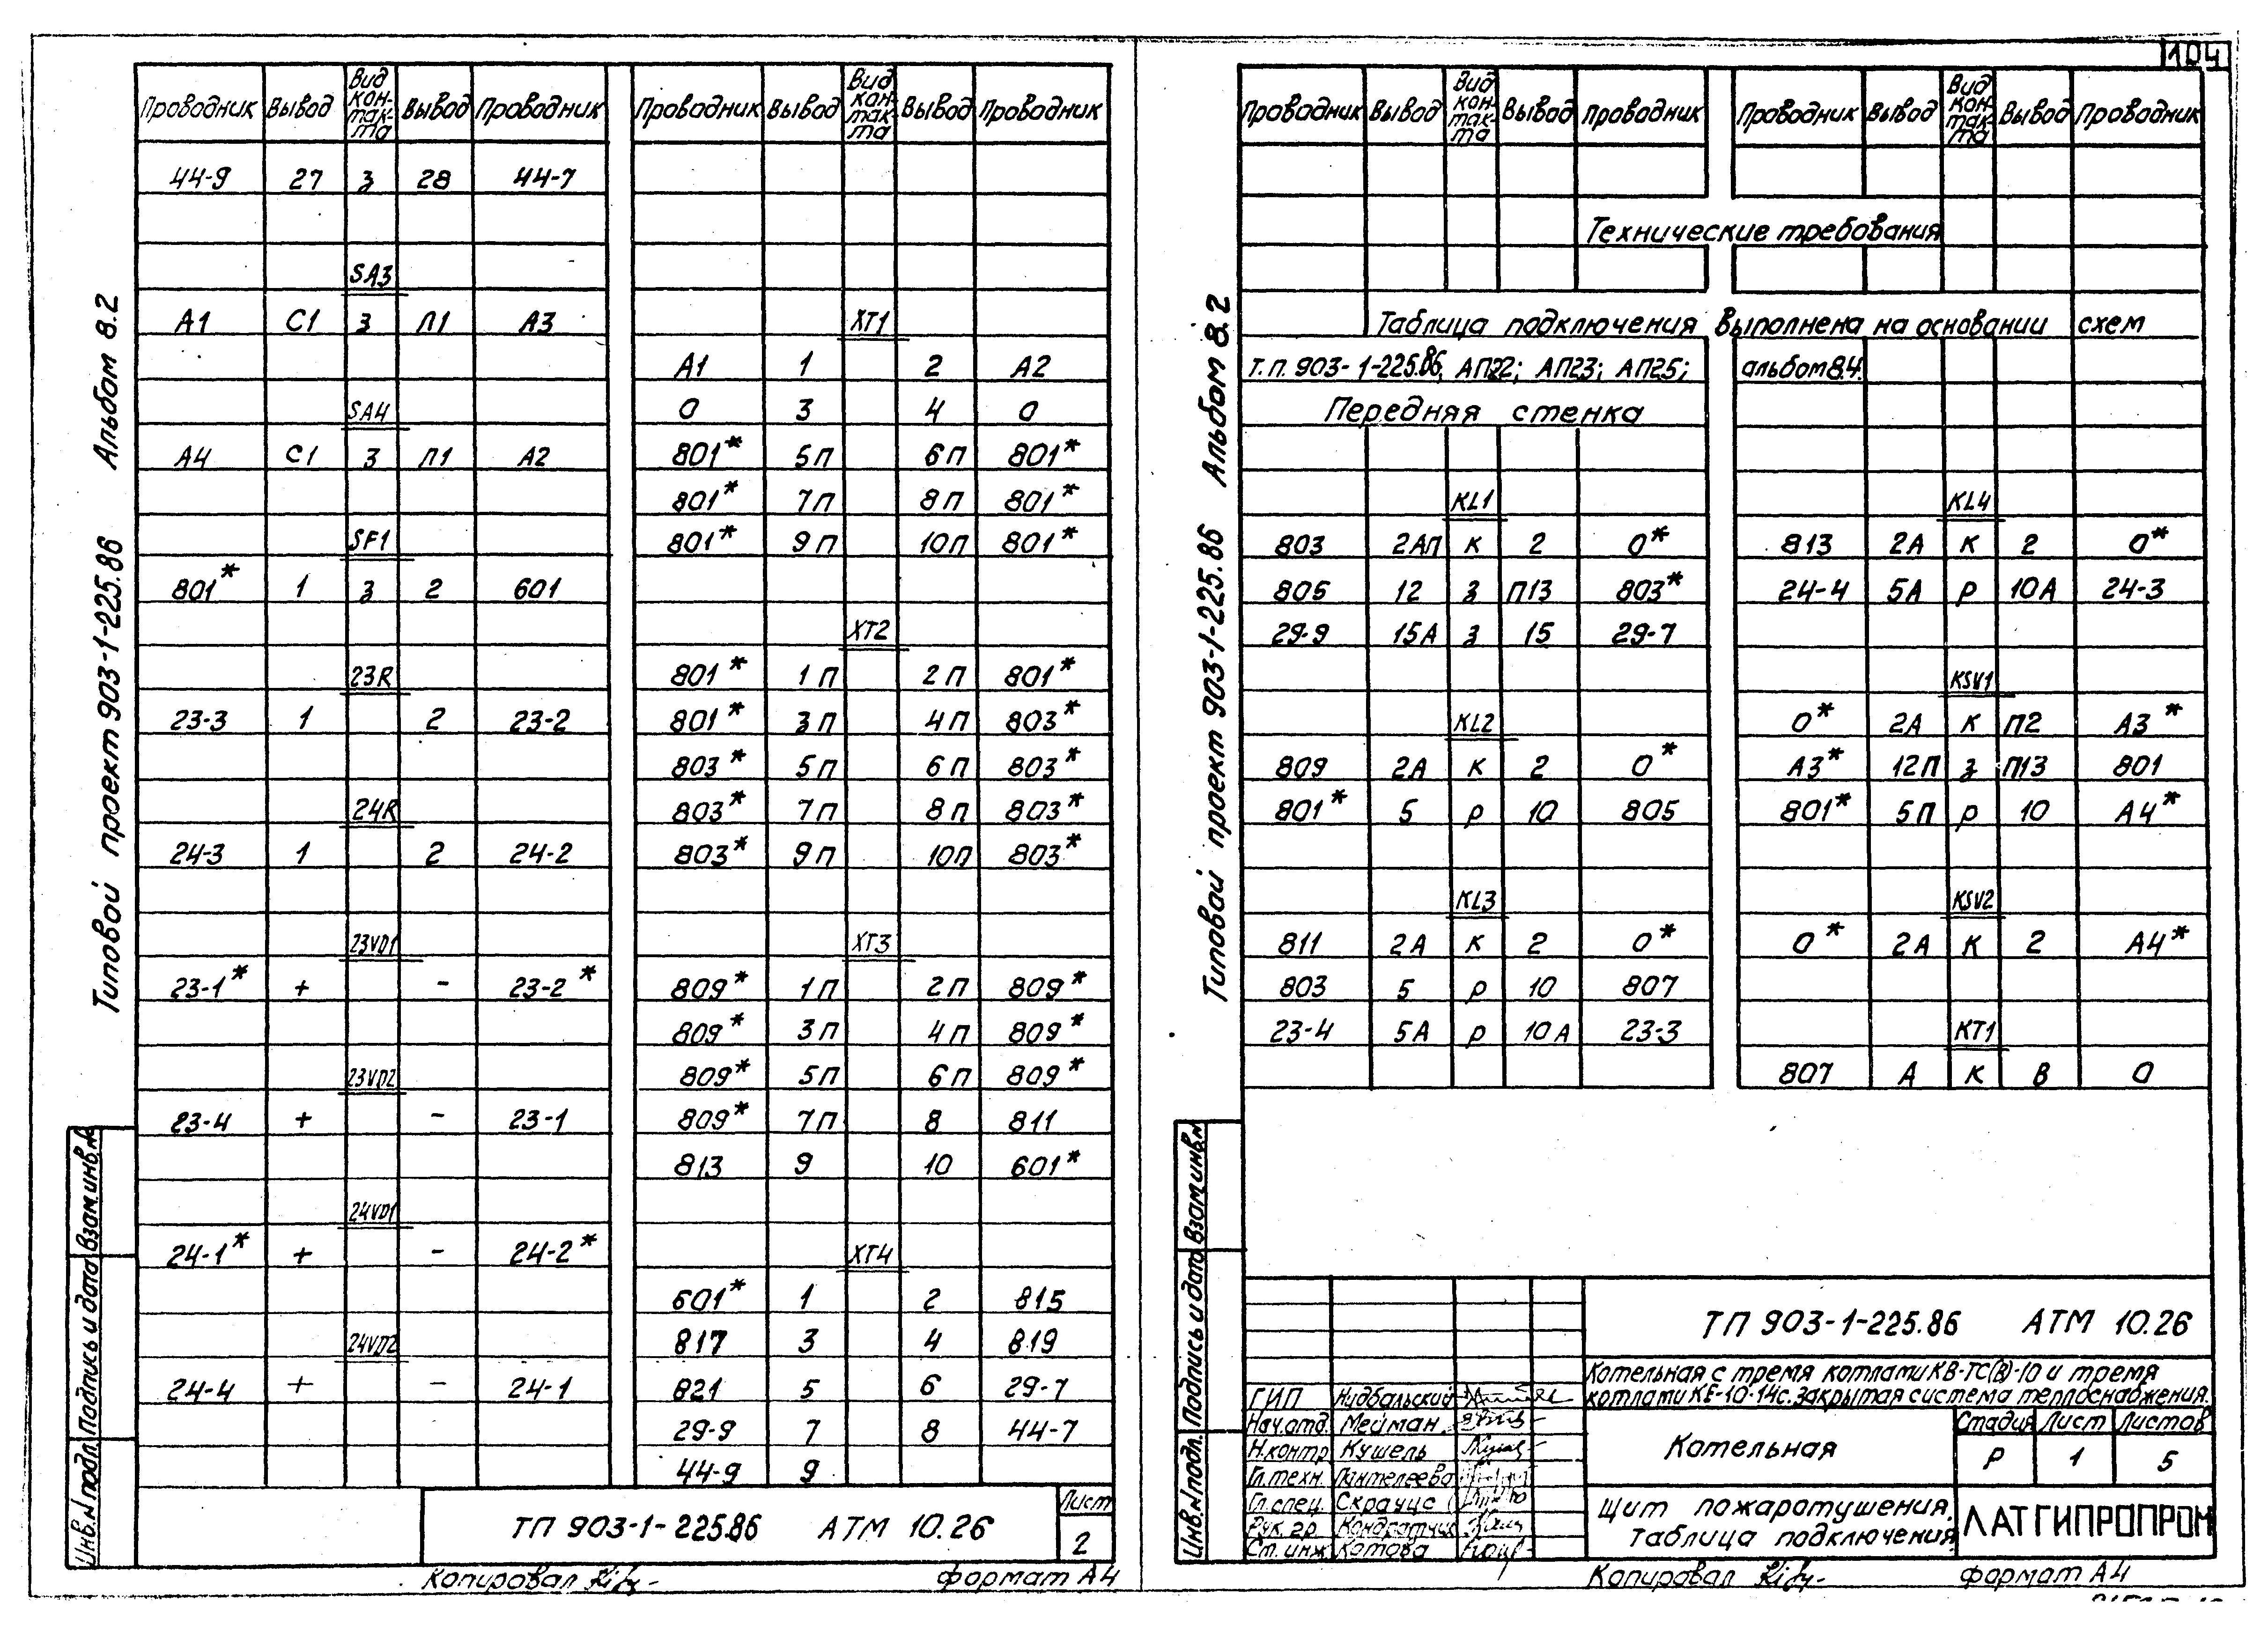 104
Альбом 8.2
Типовой проект 903-1-225.86
Взам.инв.№
Подпись и дата
Инв.№ подл.
Проводник Вывод Вид кон-так-та Вывод Проводник
44-9 27 з 28 44-7
SA3
А1 С1 з Л1 А3
SA4
А4 С1 з Л1 А2
SF1
801* 1 з 2 601
23R
23-3 1 2 23-2
24R
24-3 1 2 24-2
23VD1
23-1* + - 23-2*
23VD2
23-4 + - 23-1
24VD1
24-1* + - 24-2*
24VD2
24-4 + - 24-1
Проводник Вывод Вид кон-так-та Вывод Проводник
XT1
А1 1 2 А2
0 3 4 0
801* 5П 6П 801*
801* 7П 8П 801*
801* 9П 10П 801*
XT2
801* 1П 2П 801*
801* 3П 4П 803*
803* 5П 6П 803*
803* 7П 8П 803*
803* 9П 10П 803*
XT3
809* 1П 2П 809*
809* 3П 4П 809*
809* 5П 6П 809*
809* 7П 8 811
813 9 10 601*
XT4
601* 1 2 815
817 3 4 819
821 5 6 29-7
29-9 7 8 44-7
44-9 9
ТП 903-1-225.86 АТМ 10.26
Лист
2
Копировал
формат А4
Альбом 8.2
Типовой проект 903-1-225.86
Взам.инв.№
Подпись и дата
Инв.№ подл.
Проводник Вывод Вид кон-так-та Вывод Проводник
Проводник Вывод Вид кон-так-та Вывод Проводник
Технические требования
Таблица подключения выполнена на основании схем
т.п. 903-1-225.86, АП22; АП23; АП25; альбом 8.4.
Передняя стенка
KL1
803 2АП к 2 0*
805 12 з П13 803*
29-9 15А з 15 29-7
KL2
809 2А к 2 0*
801* 5 р 10 805
KL3
811 2А к 2 0*
803 5 р 10 807
23-4 5А р 10А 23-3
KL4
813 2А к 2 0*
24-4 5А р 10А 24-3
KSV1
0* 2А к П2 А3*
А3* 12П з П13 801
801* 5П р 10 А4*
KSV2
0* 2А к 2 А4*
KT1
807 А к В 0
ТП 903-1-225.86 АТМ 10.26
Котельная с тремя котлами КВ-ТС(В)-10 и тремя
котлами КЕ-10-14с. Закрытая система теплоснабжения.
ГИП Нудбальский
Нач.отд. Мейман
Н.контр Кушель
Гл.техн. Пантелеева
Гл.спец. Скраучс
Рук.гр Кондратчик
Ст.инж. Котова
Котельная
Стадия Лист Листов
Р 1 5
Щит пожаротушения.
Таблица подключения
ЛАТГИПРОПРОМ
Копировал
формат А4